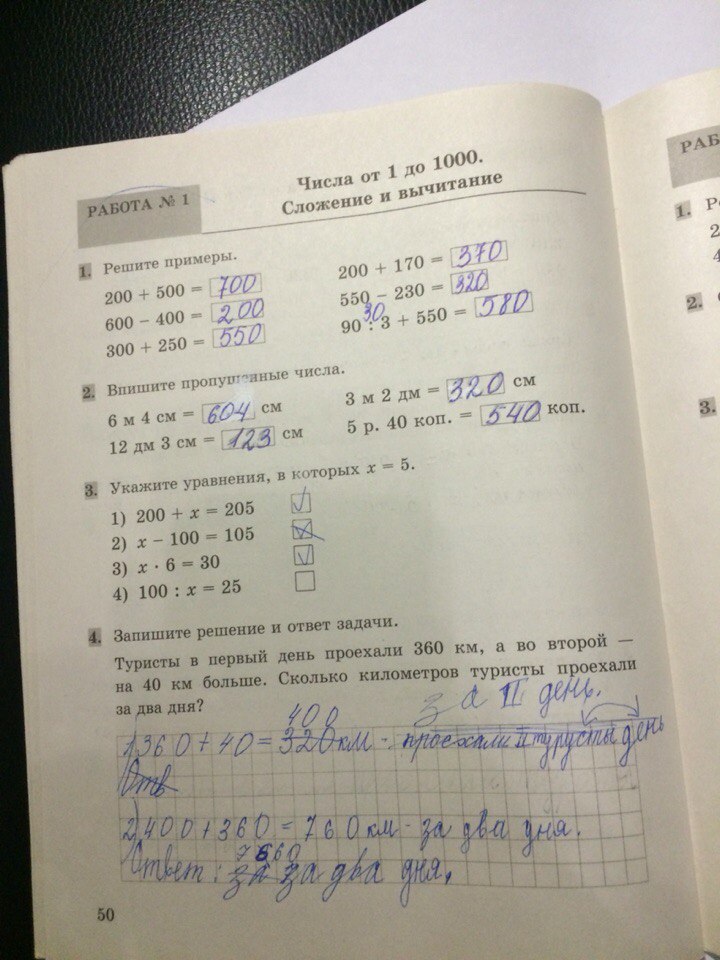 Числа от 1 до 1000.
РАБОТА № 1
Сложение и вычитание
1. Решите примеры.
200 + 500 = 700
600 – 400 = 200
300 + 250 = 550
200 + 170 = 370
550 – 230 = 320
30
90 : 3 + 550 = 580
2. Впишите пропущенные числа.
6 м 4 см = 604 см
12 дм 3 см = 123 см
3 м 2 дм = 320 см
5 р. 40 коп. = 540 коп.
3. Укажите уравнения, в которых x = 5.
1) 200 + x = 205
2) x – 100 = 105
3) x · 6 = 30
4) 100 : x = 25
4. Запишите решение и ответ задачи.
Туристы в первый день проехали 360 км, а во второй —
на 40 км больше. Сколько километров туристы проехали
за два дня?
за II день.
400
1) 360 + 40 = 320 км - проехали II турусты день
Отв
2) 400 + 360 = 760 км - за два дня.
Ответ: за два дня.
50
РАБ
1.
2.
3.